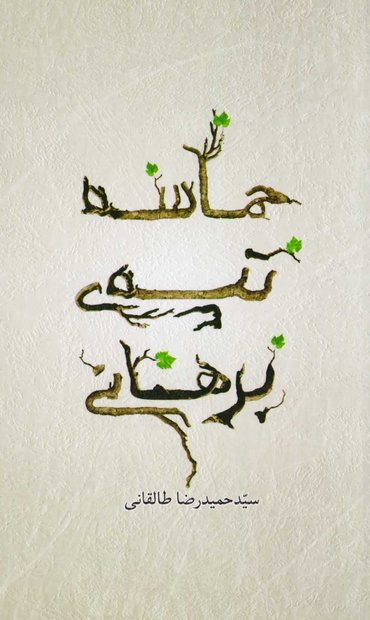 حماسه
برهانی
سیّدحمیدرضا طالقانی